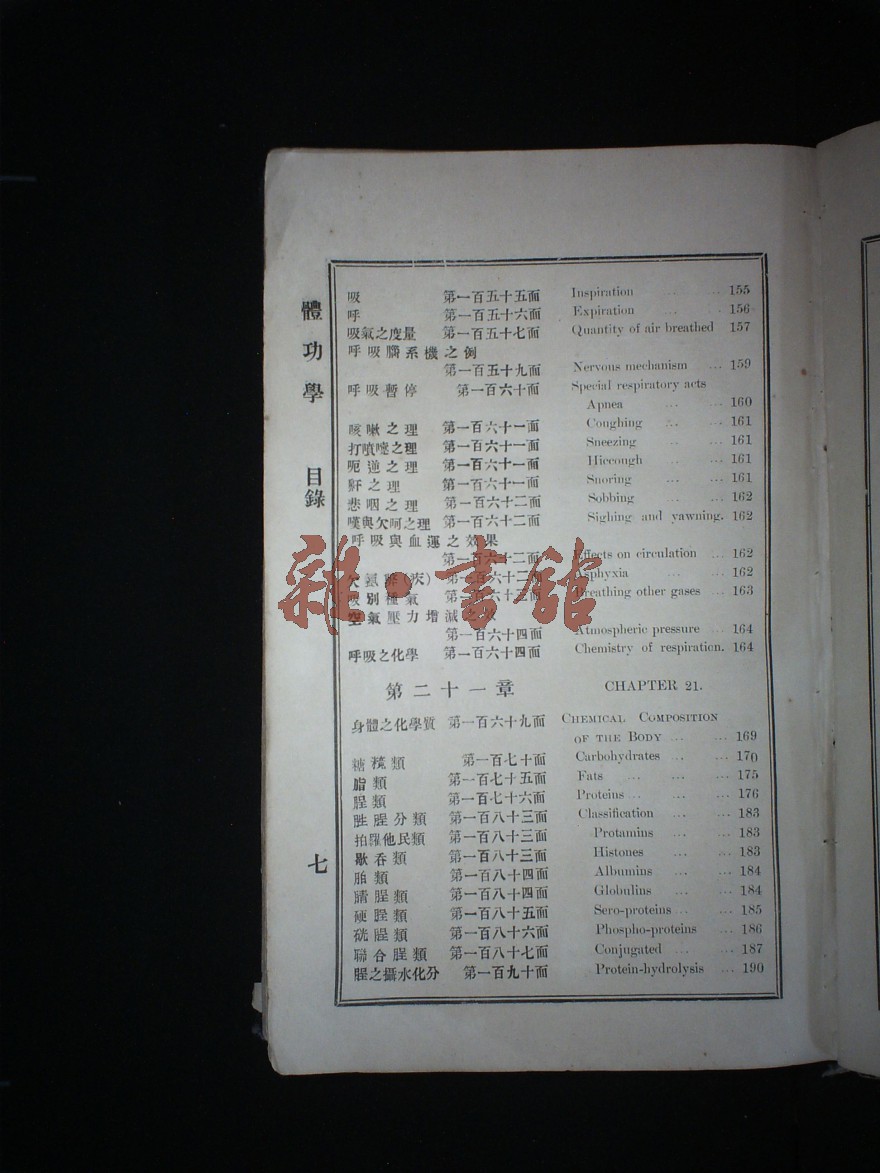 體功學 目錄 七
吸 第一百五十五面 Inspiration ... ... 155
呼 第一百五十六面 Expiration ... ... 156
吸氣之度量 第一百五十七面 Quantity of air breathed 157
呼吸腦系機之例
第一百五十九面 Nervous mechanism ... 159
呼吸暫停 第一百六十面 Special respiratory acts
Apnea ... ... 160
咳嗽之理 第一百六十一面 Coughing ... ... 161
打噴嚏之理 第一百六十一面 Sneezing ... ... 161
呃逆之理 第一百六十一面 Hiccough ... ... 161
鼾之理 第一百六十一面 Snoring ... ... 161
悲咽之理 第一百六十二面 Sobbing ... ... 162
嘆與欠呵之理 第一百六十二面 Sighing and yawning. 162
呼吸與血運之效果
第一百六十二面 Effects on circulation ... 162
第一百六十二面 Asphyxia ... ... 162
吸別種氣 第一百六十三面 Breathing other gases ... 163
空氣壓力增減之
第一百六十四面 Atmospheric pressure ... 164
呼吸之化學 第一百六十四面 Chemistry of respiration. 164
第二十一章 CHAPTER 21.
身體之化學質 第一百六十九面 CHEMICAL COMPOSITION
OF THE BODY ... ... 169
糖類 第一百七十面 Carbohydrates ... ... 170
脂類 第一百七十五面 Fats ... ... ... 175
腥類 第一百七十六面 Proteins ... ... ... 176
腥分類 第一百八十三面 Classification ... ... 183
拍羅他民類 第一百八十三面 Protamins ... ... 183
歇吞類 第一百八十三面 Histones ... ... 183
胎類 第一百八十四面 Albumins ... ... 184
腥類 第一百八十四面 Globulins ... ... 184
硬腥類 第一百八十五面 Sero-proteins ... ... 185
腥類 第一百八十六面 Phospho-proteins ... 186
聯合腥類 第一百八十七面 Conjugated ... ... 187
腥之攝水化分 第一百九十面 Protein-hydrolysis ... 190
雜·書館